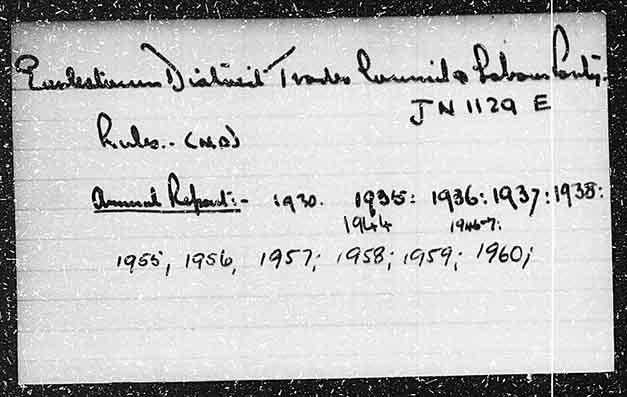 Earlestown District Trades Council & Labour Party.
JN 1129 E
Rules.. (N.D)
Annual Report:- 1930. 1935: 1936: 1937: 1938:
1944 1946-7:
1955, 1956, 1957; 1958; 1959; 1960;